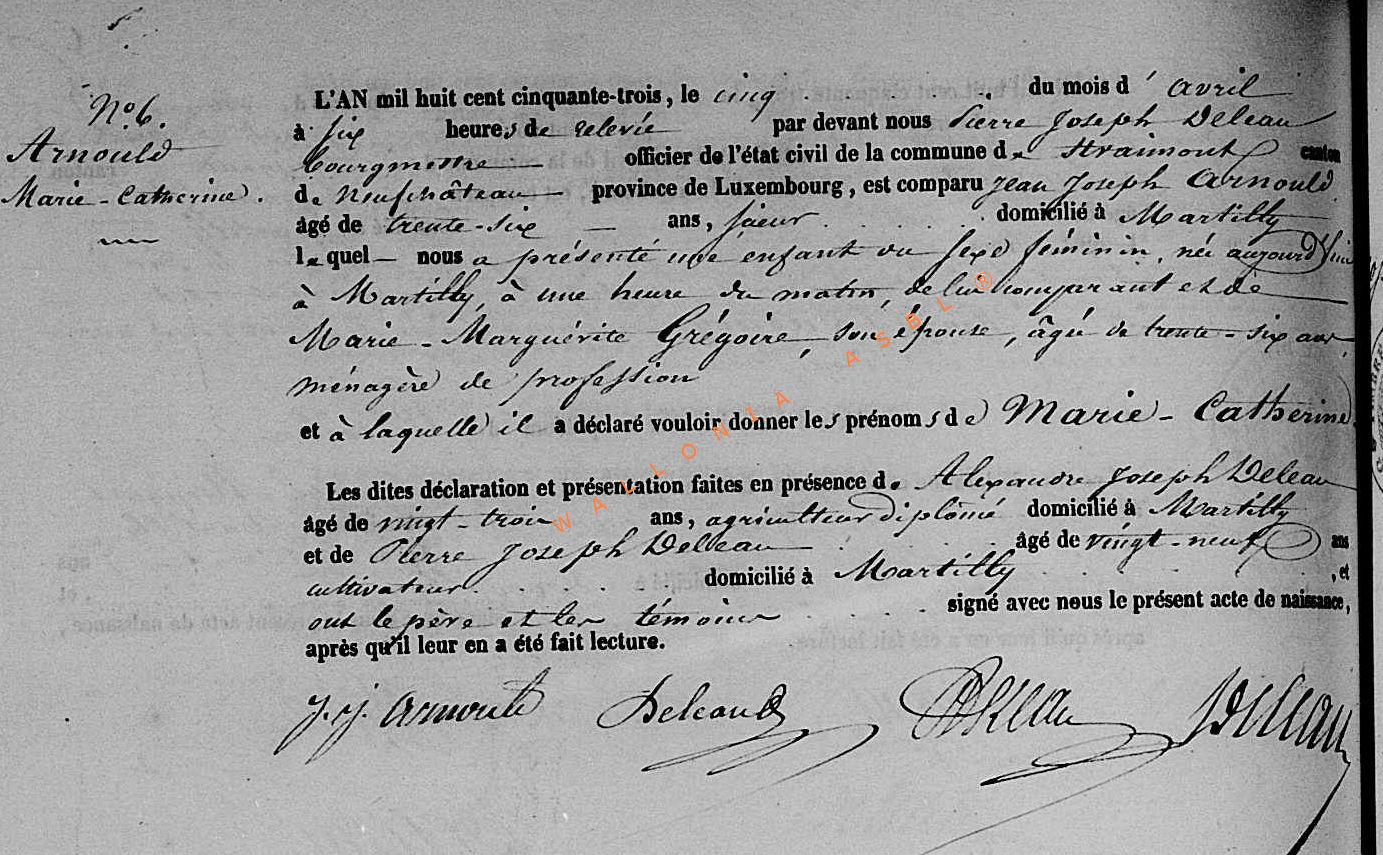 No. 6.
Arnould
Marie-Catherine.
L'AN mil huit cent cinquante-trois, le cinq du mois d' avril
à six heures de relevée par devant nous Pierre Joseph Deleau
bourgmestre officier de l'état civil de la commune de Straimont canton
de Neufchâteau province de Luxembourg, est comparu Jean Joseph Arnould
âgé de trente-six ans, domicilié à Martilly
lequel nous a présenté une enfant du sexe féminin, née aujourd'hui
à Martilly, à une heure du matin, de lui comparant et de
Marie-Marguérite Grégoire, son épouse, âgée de trente-six ans,
ménagère de profession
et à laquelle il a déclaré vouloir donner les prénoms de Marie-Catherine.
Les dites déclaration et présentation faites en présence de Alexandre Joseph Deleau
âgé de vingt-trois ans, agriculteur diplômé domicilié à Martilly
et de Pierre Joseph Deleau âgé de vingt-neuf ans
cultivateur domicilié à Martilly, et
ont le père et les témoins signé avec nous le présent acte de naissance,
après qu'il leur en a été fait lecture.
J. J. Arnould Deleau Deleau Deleau
WALLONIA ASBL ®